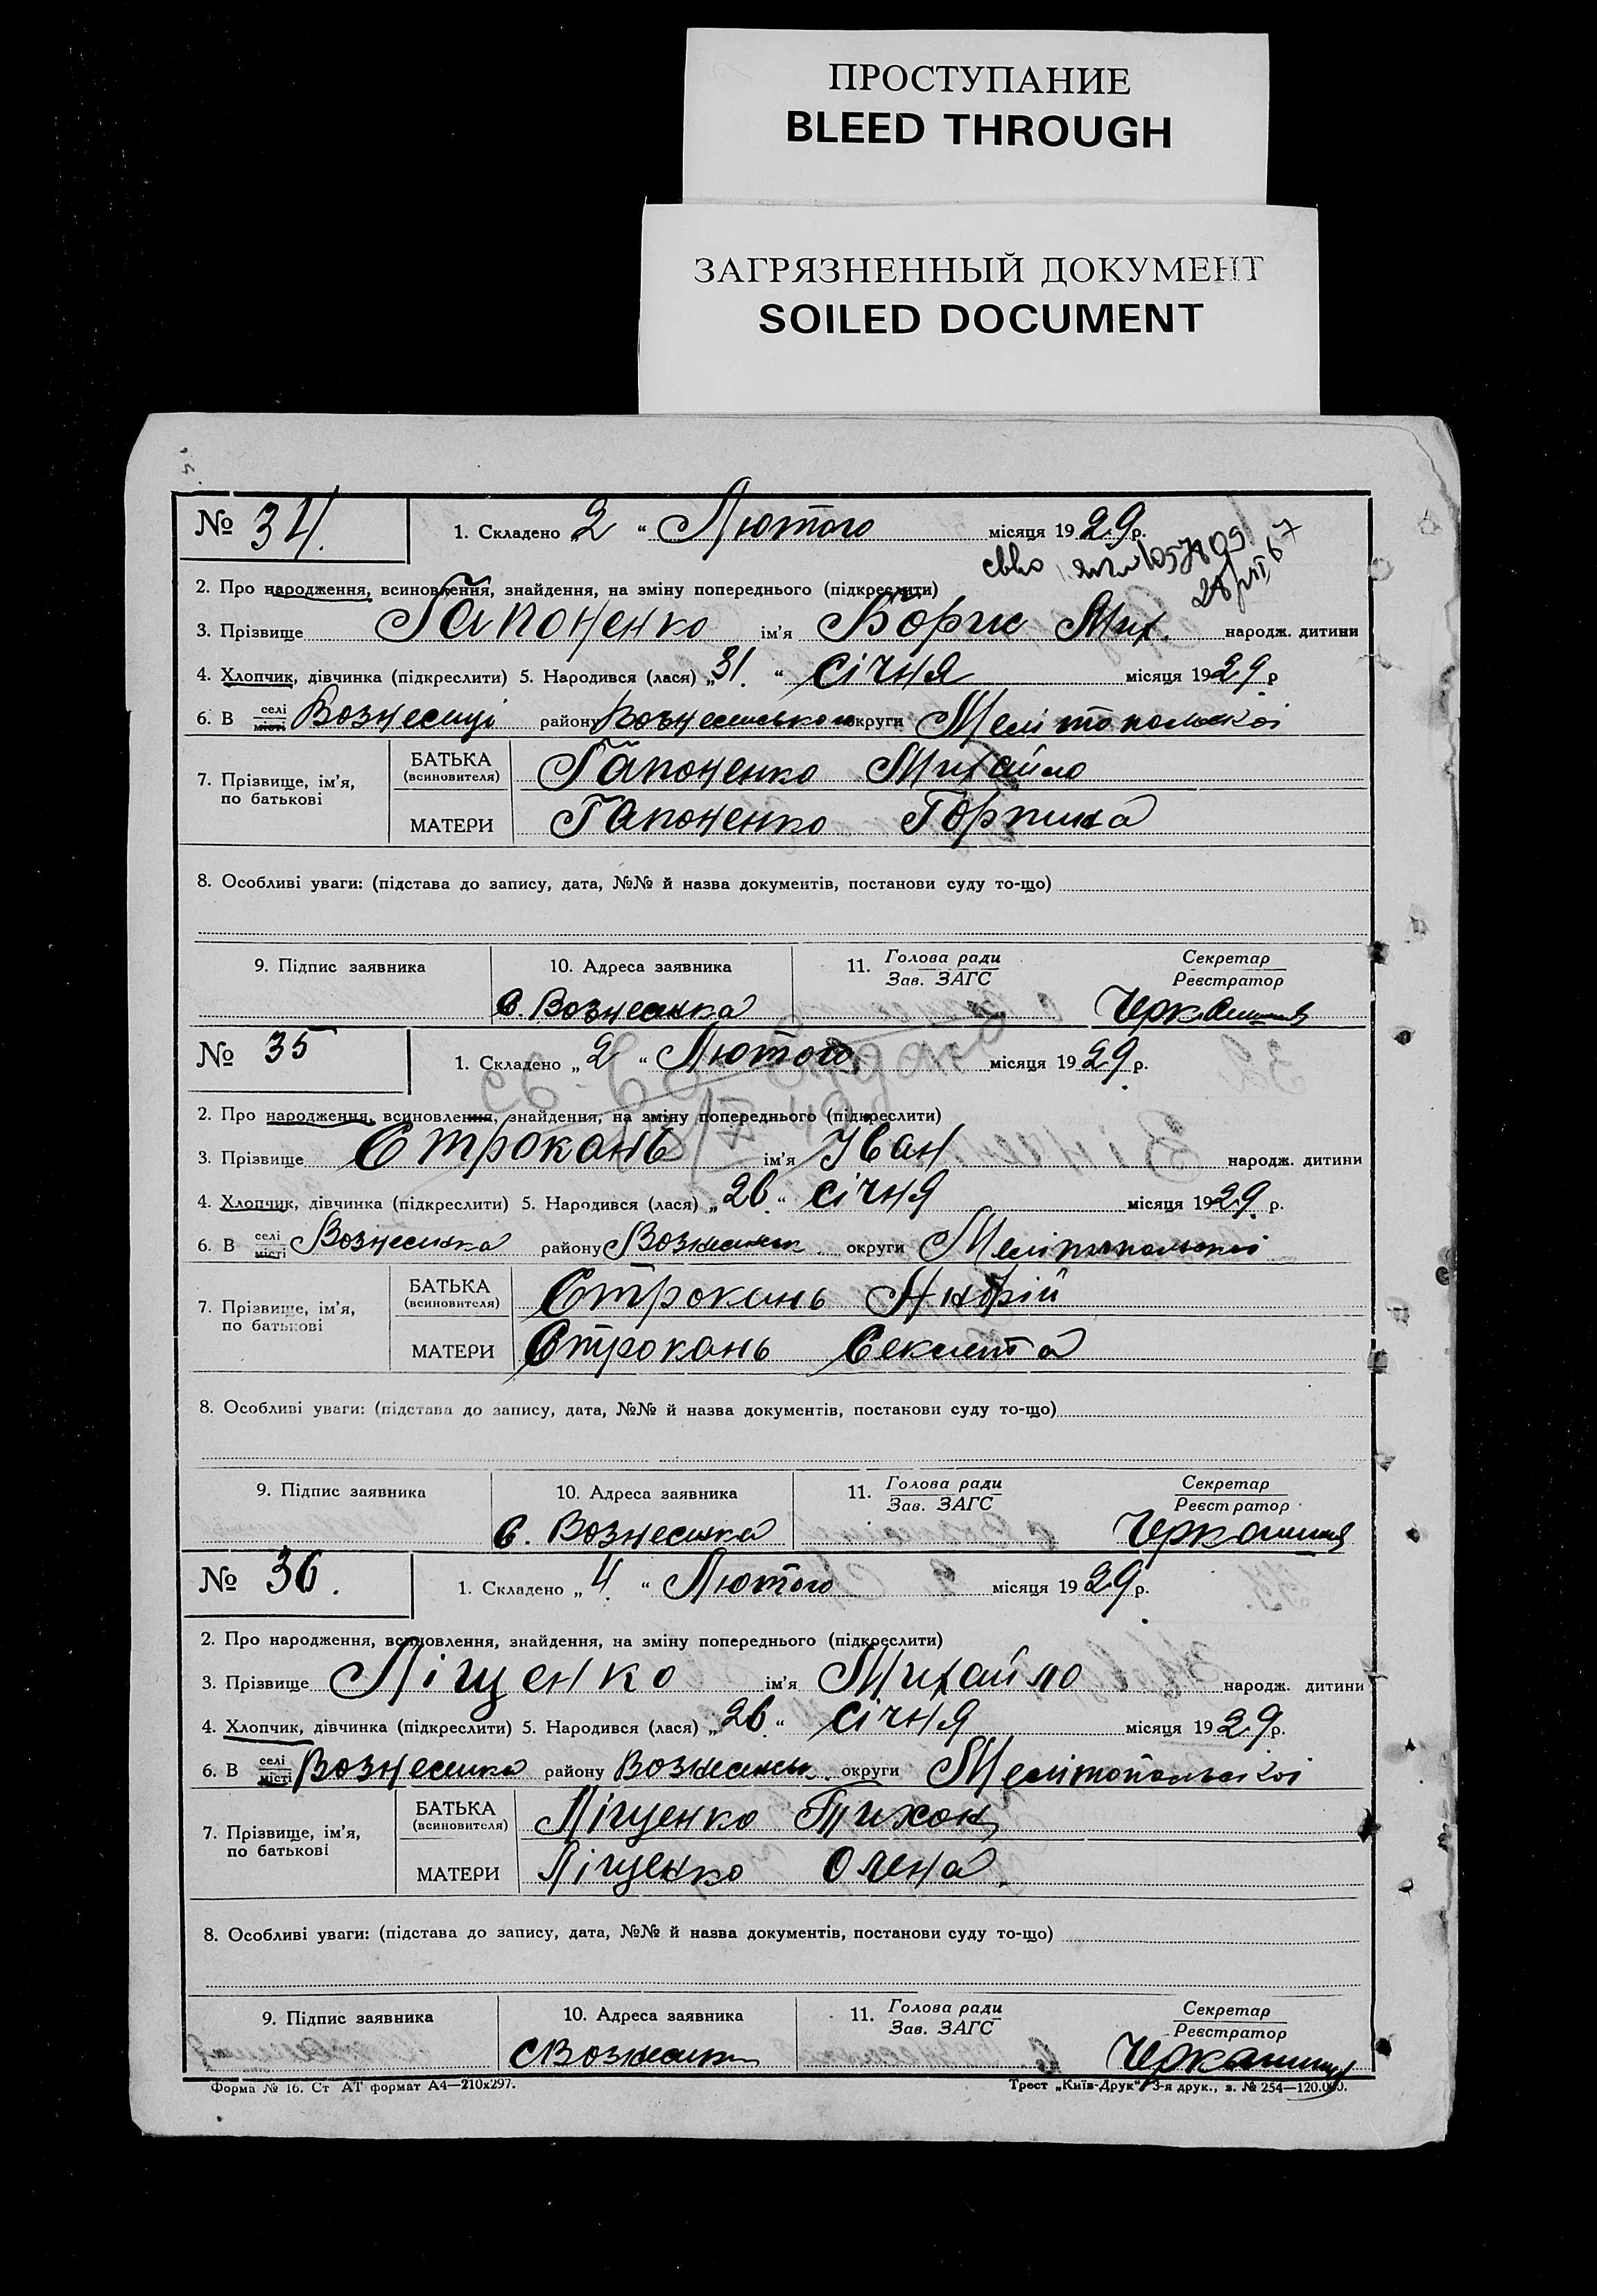 ПРОСТУПАНИЕ
BLEED THROUGH
ЗАГРЯЗНЕННЫЙ ДОКУМЕНТ
SOILED DOCUMENT
№ 34. 1. Складено „2“ Лютого місяця 1929 р.
2. Про народження, всиновлення, знайдення, на зміну попереднього (підкреслити)
3. Прізвище Гапоненко ім'я Борис Мих. народж. дитини
4. Хлопчик, дівчинка (підкреслити) 5. Народився (лася) „31.“ січня місяця 1929 р
6. В селі місті Вознесинці району Вознесинського округи Мелітопольскої
7. Прізвище, ім'я, по батькові
БАТЬКА (всиновителя) Гапоненко Михайло
МАТЕРИ Гапоненко Горпина
8. Особливі уваги: (підстава до запису, дата, №№ й назва документів, постанови суду то-що)
9. Підпис заявника 10. Адреса заявника 11. Голова ради Зав. ЗАГС Секретар Реєстратор
с. Вознесинка
№ 35 1. Складено „2“ Лютого місяця 1929 р.
2. Про народження, всиновлення, знайдення, на зміну попереднього (підкреслити)
3. Прізвище Строкань ім'я Іван народж. дитини
4. Хлопчик, дівчинка (підкреслити) 5. Народився (лася) „26.“ січня місяця 1929 р.
6. В селі місті Вознесинка району Вознесинськ. округи Мелітопольскої
7. Прізвище, ім'я, по батькові
БАТЬКА (всиновителя) Строкань Андрій
МАТЕРИ Строкань Секлета
8. Особливі уваги: (підстава до запису, дата, №№ й назва документів, постанови суду то-що)
9. Підпис заявника 10. Адреса заявника 11. Голова ради Зав. ЗАГС Секретар Реєстратор
с. Вознесинка
№ 36. 1. Складено „4.“ Лютого місяця 1929 р.
2. Про народження, всиновлення, знайдення, на зміну попереднього (підкреслити)
3. Прізвище Ліщенко ім'я Михайло народж. дитини
4. Хлопчик, дівчинка (підкреслити) 5. Народився (лася) „26.“ січня місяця 1929 р.
6. В селі місті Вознесинка району Вознесинськ. округи Мелітопольської
7. Прізвище, ім'я, по батькові
БАТЬКА (всиновителя) Ліщенко Тихон
МАТЕРИ Ліщенко Олена.
8. Особливі уваги: (підстава до запису, дата, №№ й назва документів, постанови суду то-що)
9. Підпис заявника 10. Адреса заявника 11. Голова ради Зав. ЗАГС Секретар Реєстратор
с Вознесинк
Форма № 16. Ст АТ формат А4—210х297. Трест „Київ-Друк“ 3-я друк., з. № 254—120.000.